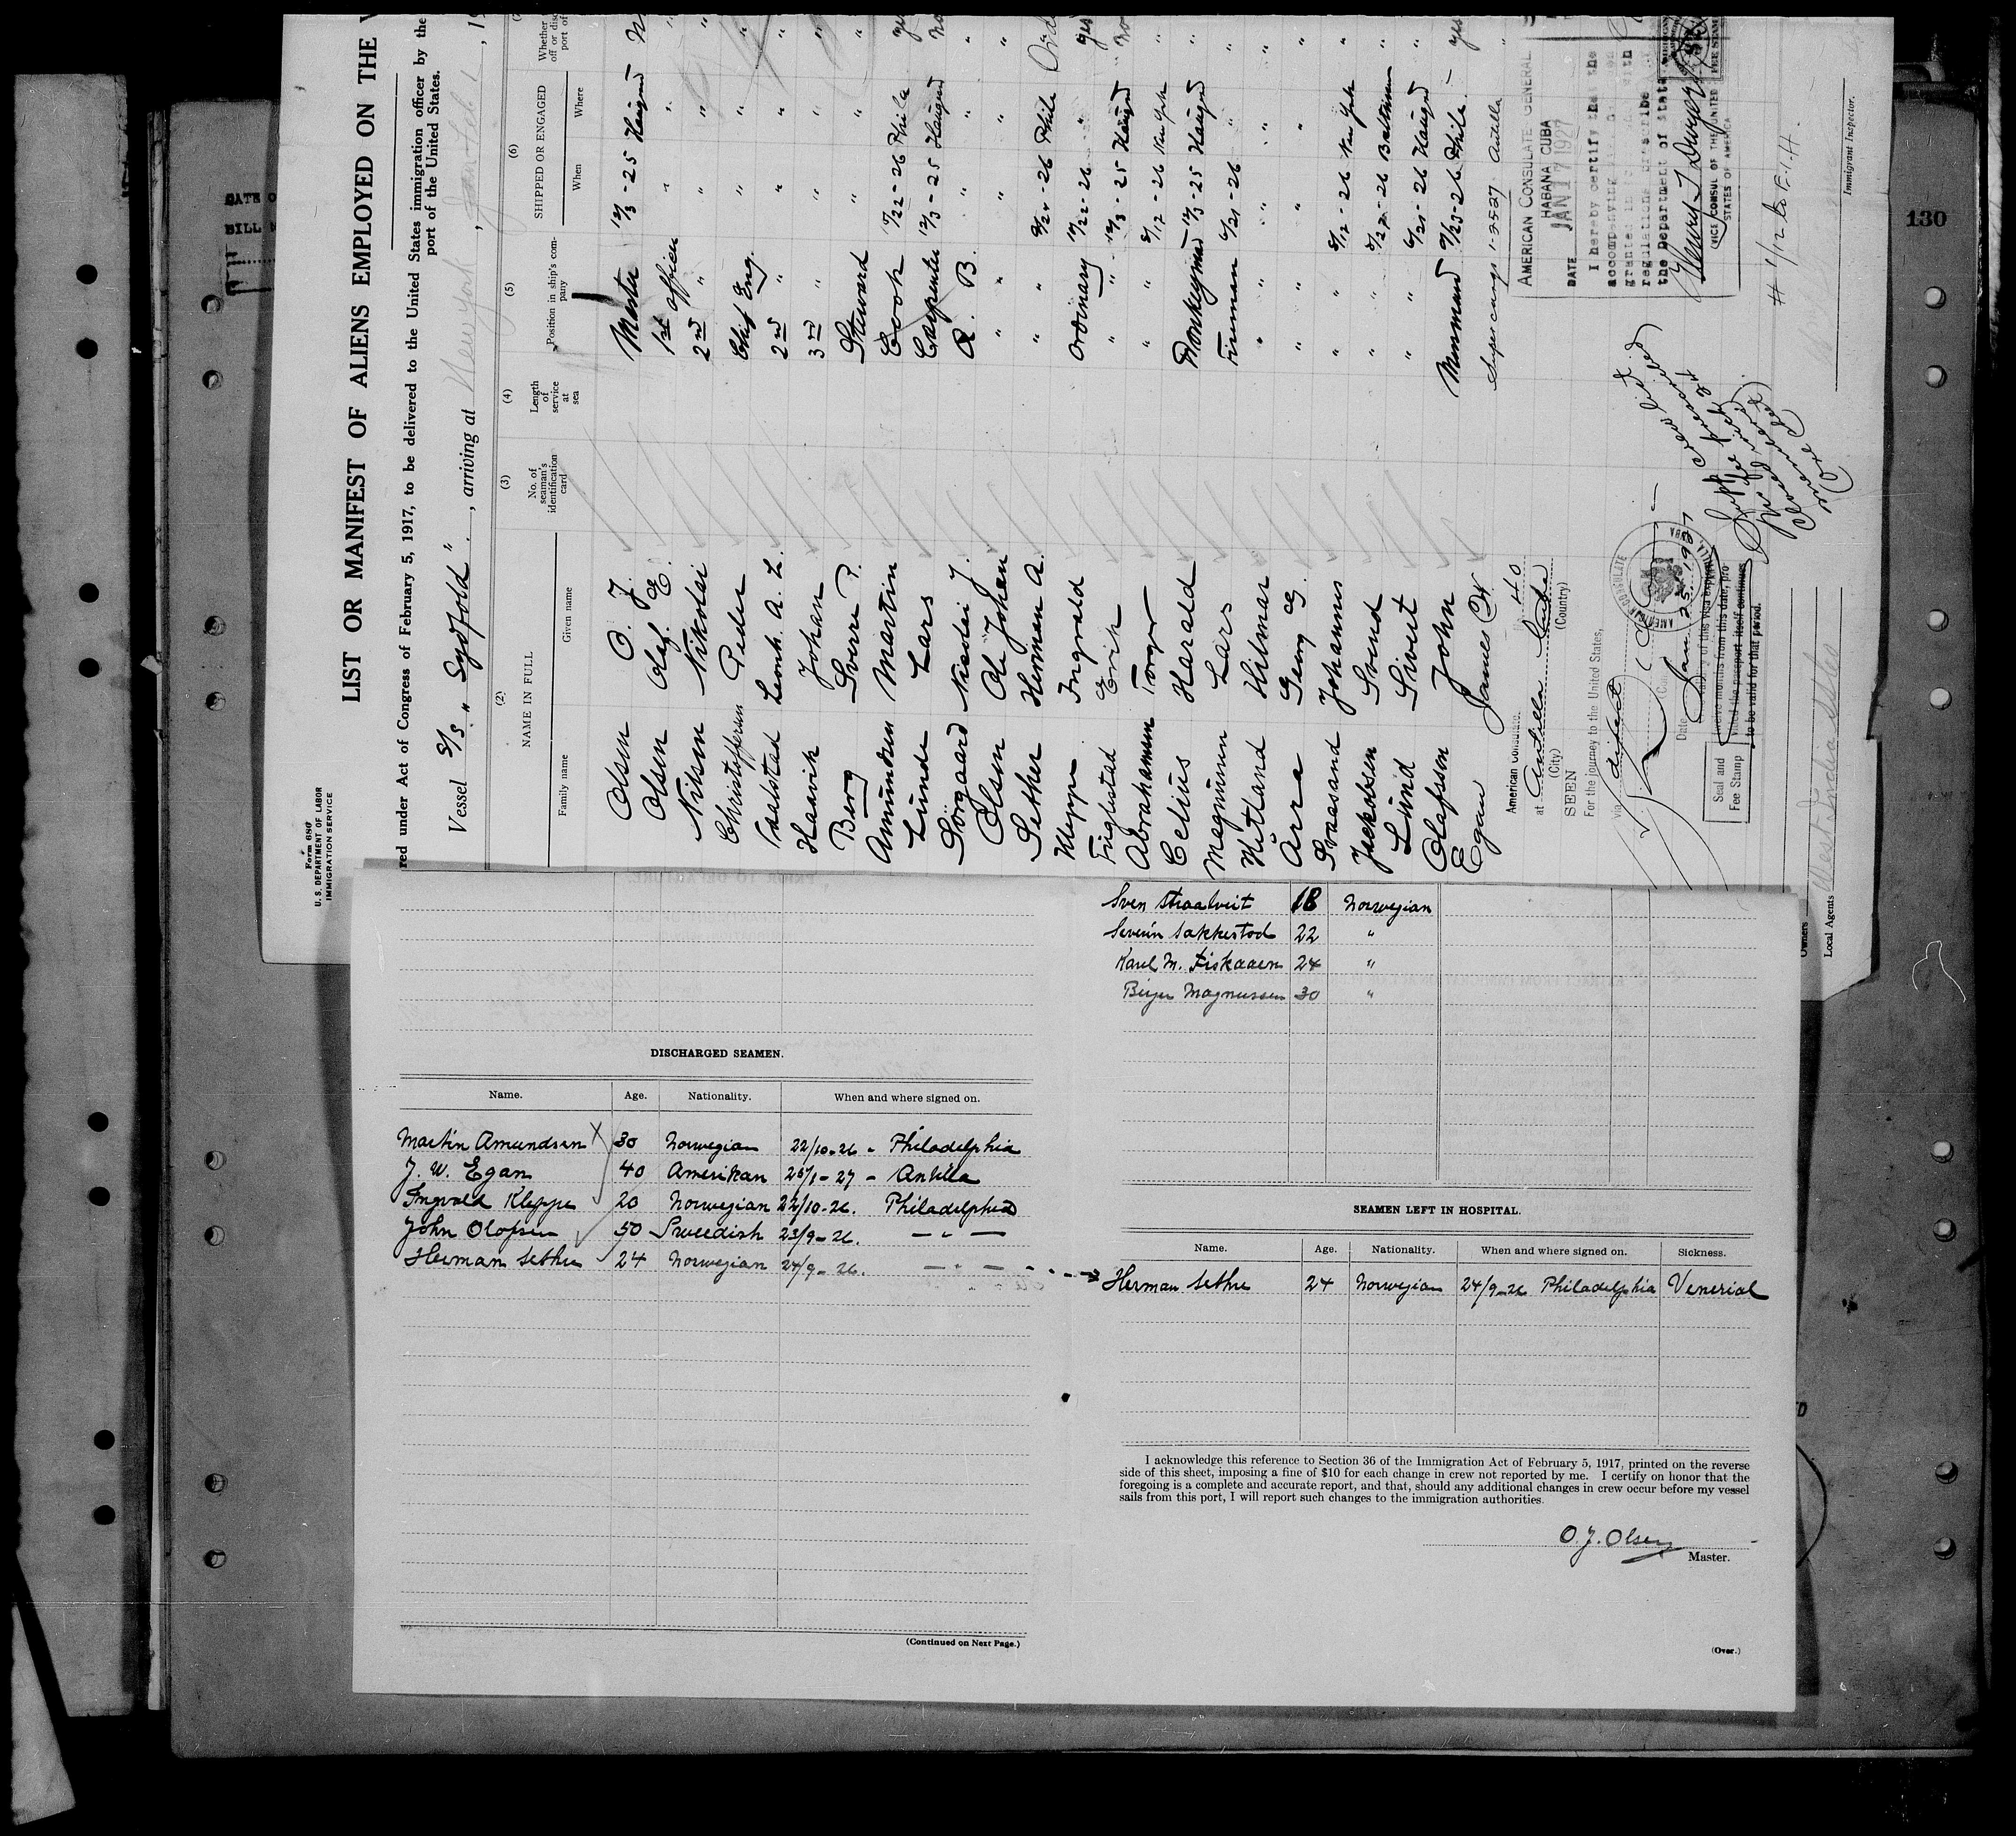 Form 680
U. S. DEPARTMENT OF LABOR
IMMIGRATION SERVICE
LIST OR MANIFEST OF ALIENS EMPLOYED ON THE
red under Act of Congress of February 5, 1917, to be delivered to the United States immigration officer by the
port of the United States.
Vessel S/S. " Sydfold", arriving at New York
(2) (3) (4) (5) (6)
NAME IN FULL
Family name Given name
No. of seaman's identification card
Length of service at sea
Position in ship's company
SHIPPED OR ENGAGED
When Where
Olsen O. J. Master 12/3 - 25 Haugesund
Olsen Olaf. E. 1st officer " "
Nilsen Nikolai 2nd " " "
Christoffersen Peder Chief Eng. " "
Leonh. A. L. 2nd " " "
Haavik Johan 3rd " " "
Berg Sverre P. Steward " "
Amundsen Martin Cook 10/22 - 26 Phila
Lunde Lars Carpenter 12/3 - 25 Haugesund
Sörgaard Nicolai J. A. B. " "
Olsen Ole Johan " " "
Sethre Herman A. " 9/24 - 26 Phila
Kleppe Ingvald Ordinary 10/22 - 26 "
Erik " 12/3 - 25 Haugesund
Abrahamsen Torger " 8/12 - 26 New York
Celius Harald Donkeyman 12/3 - 25 Haugesund
Magnusen Lars Fireman 6/21 - 26 "
Hitland Hilmar " " "
Årra Georg G. " " "
Johannes " 8/12 - 26 New York
Jackobsen Svend " 8/27 - 26 Baltimore
Lund Sivert " 6/21 - 26 Haugesund
Olafsson John Messman 9/23 - 26 Phila.
Egan James W. 40 Supercargo 1-25-27 Antilla
American Consulate.
at Antilla Cuba
(City) (Country)
SEEN
For the journey to the United States,
Date Jan 25 1927
Seal and
Fee Stamp
to be valid for that period.
AMERICAN CONSULATE GENERAL
HABANA CUBA
DATE JAN 17 1927
I hereby certify that the
accompanying
granted in with
regulations prescribed
the Department of State
Henry T. Dwyer
VICE CONSUL OF THE UNITED
STATES OF AMERICA
Immigrant Inspector.
Owners
Local Agents West India SS Co
130
Sven Straatveit 18 Norwegian
Severin Sakkestad 22 "
Karl M. Fiskaaen 24 "
Birger Magnussen 30 "
DISCHARGED SEAMEN.
Name. Age. Nationality. When and where signed on.
Martin Amundsen 30 Norwegian 22/10-26 - Philadelphia
J. W. Egan 40 Amerikan 25/1 - 27 - Antilla
Ingvald Kleppe 20 Norwegian 22/10-26. Philadelphia
John Olofsen 50 Sweedish 23/9 - 26. — " —
Herman Sethre 24 Norwegian 24/9 - 26. — " —
(Continued on Next Page.)
SEAMEN LEFT IN HOSPITAL.
Name. Age. Nationality. When and where signed on. Sickness.
Herman Sethre 24 Norwegian 24/9-26 Philadelphia Venerial
I acknowledge this reference to Section 36 of the Immigration Act of February 5, 1917, printed on the reverse
side of this sheet, imposing a fine of $10 for each change in crew not reported by me. I certify on honor that the
foregoing is a complete and accurate report, and that, should any additional changes in crew occur before my vessel
sails from this port, I will report such changes to the immigration authorities.
O. J. Olsen
Master.
(Over.)